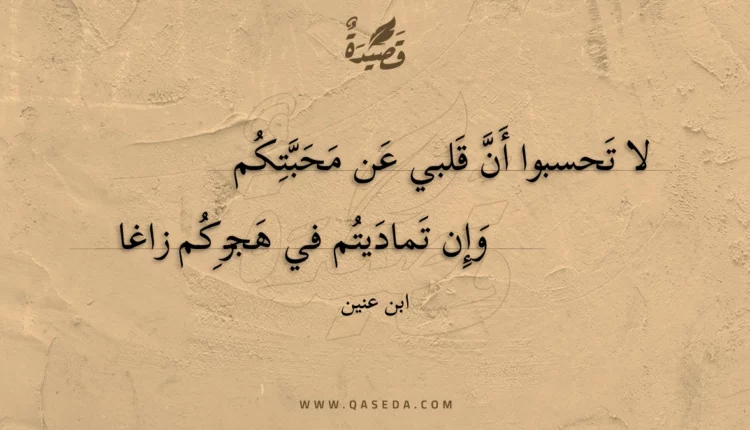 قَصِيدَةٌ
لا تَحسبوا أَنَّ قَلبي عَن مَحَبَّتِكُم
وَإِن تَمادَيتُم في هَجرِكُم زاغا
ابن عنين
WWW.QASEDA.COM